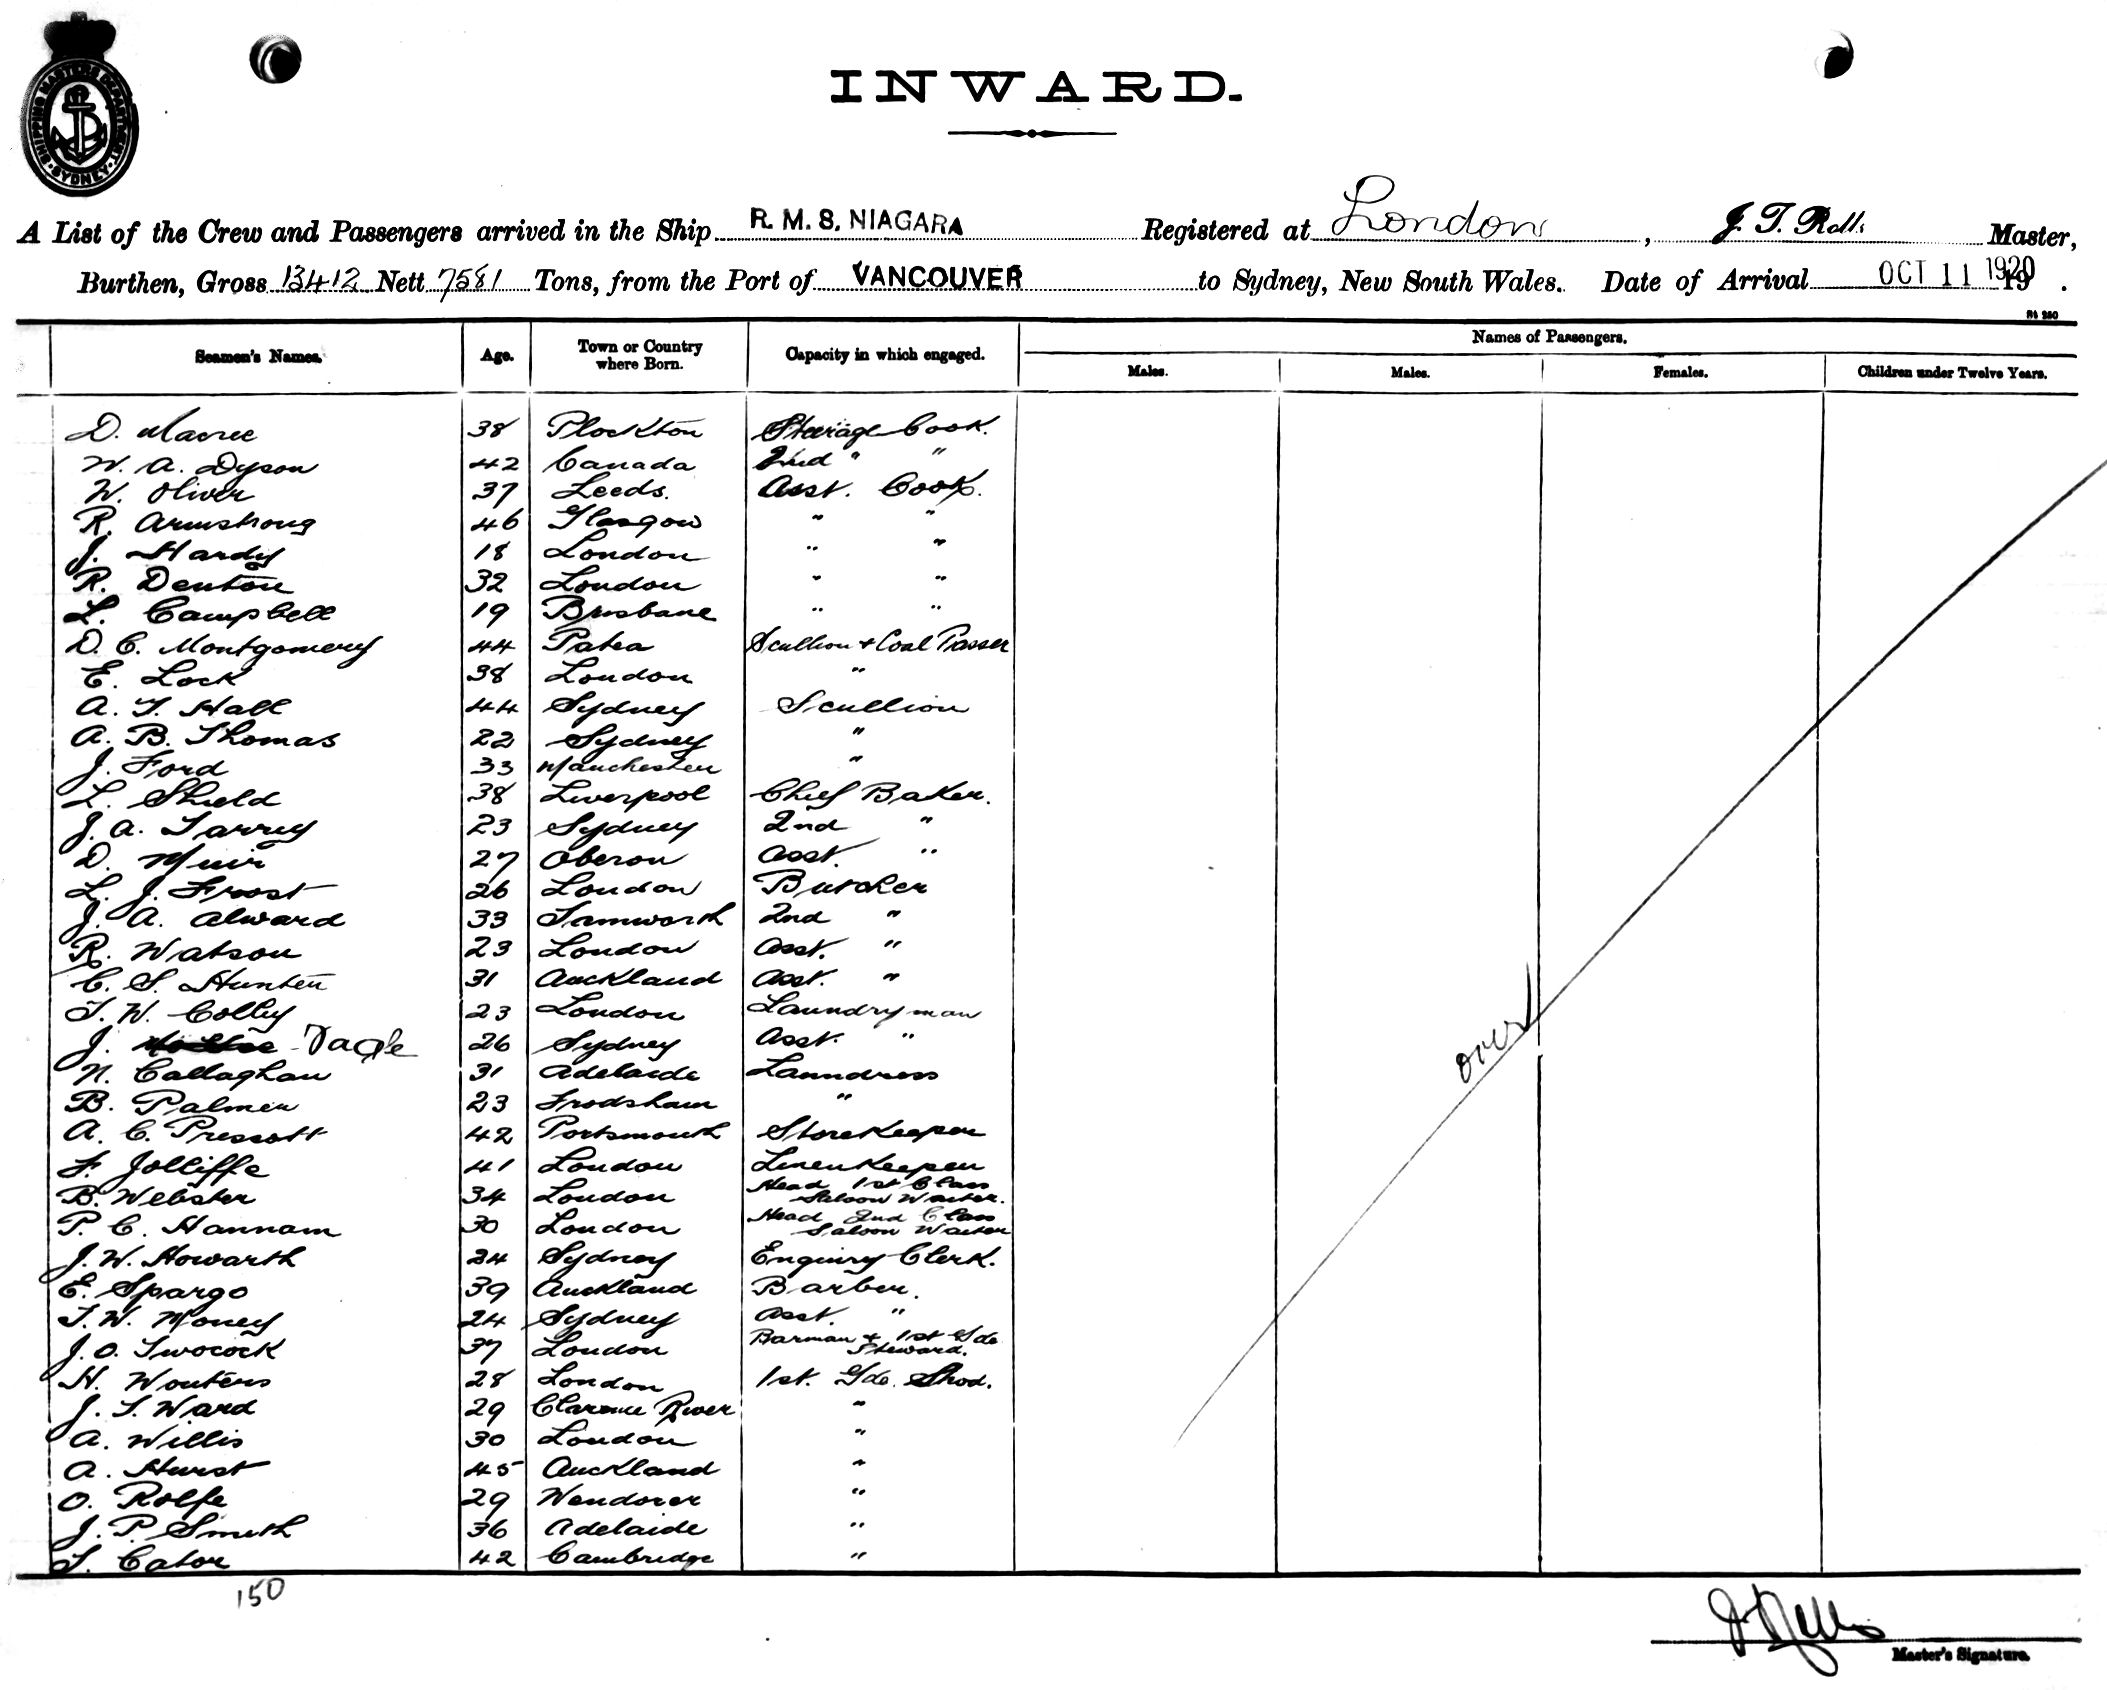 SHIPPING MASTERS DEPARTMENT
SYDNEY
INWARD.
A List of the Crew and Passengers arrived in the Ship R. M. S. NIAGARA Registered at London, J. T. Rolls Master,
Burthen, Gross 13412 Nett 7581 Tons, from the Port of VANCOUVER to Sydney, New South Wales. Date of Arrival OCT 11 1920 19 .
Seamen's Names. Age. Town or Country where Born. Capacity in which engaged. Names of Passengers.
Males. Males. Females. Children under Twelve Years.
D. Macrae 38 Plockton Steerage Cook.
W. A. Dyson 42 Canada 2nd " "
W. Oliver 37 Leeds. Asst. Cook.
R. Armstrong 46 Glasgow " "
J. Hardy 18 London " "
R. Denton 32 London " "
L. Campbell 19 Brisbane " "
D. C. Montgomery 44 Patea Scullion + Coal Passer
E. Lock 38 London "
A. T. Hall 44 Sydney Scullion
A. B. Thomas 22 Sydney "
J. Ford 33 Manchester "
L. Shield 38 Liverpool Chief Baker.
J. A. Tarry 23 Sydney 2nd "
D. Muir 27 Oberon Asst. "
L. J. Frost 26 London Butcher
J. A. Alward 33 Tamworth 2nd "
R. Watson 23 London Asst. "
C. S. Hunter 31 Auckland Asst. "
T. W. Colley 23 London Laundryman
J. Tagle 26 Sydney Asst. "
N. Callaghan 31 Adelaide Laundress
B. Palmer 23 Frodsham "
A. C. Prescott 42 Portsmouth Storekeeper
F. Jolliffe 41 London Linenkeeper
B. Webster 34 London Head 1st Class Saloon Waiter.
P. C. Hannam 30 London Head 2nd Class Saloon Waiter
J. W. Howarth 24 Sydney Enquiry Clerk.
E. Spargo 39 Auckland Barber.
T. W. Money 24 Sydney Asst. "
J. O. Twocock 37 London Barman + 1st Gde Steward.
H. Wouters 28 London 1st. Gde. Stwd.
J. T. Ward 29 Clarence River "
A. Willis 30 London "
A. Hurst 45 Auckland "
O. Rolfe 29 Wendover "
J. P. Smith 36 Adelaide "
T. Cator 42 Cambridge "
over
150
J. T. Rolls
Master's Signature.